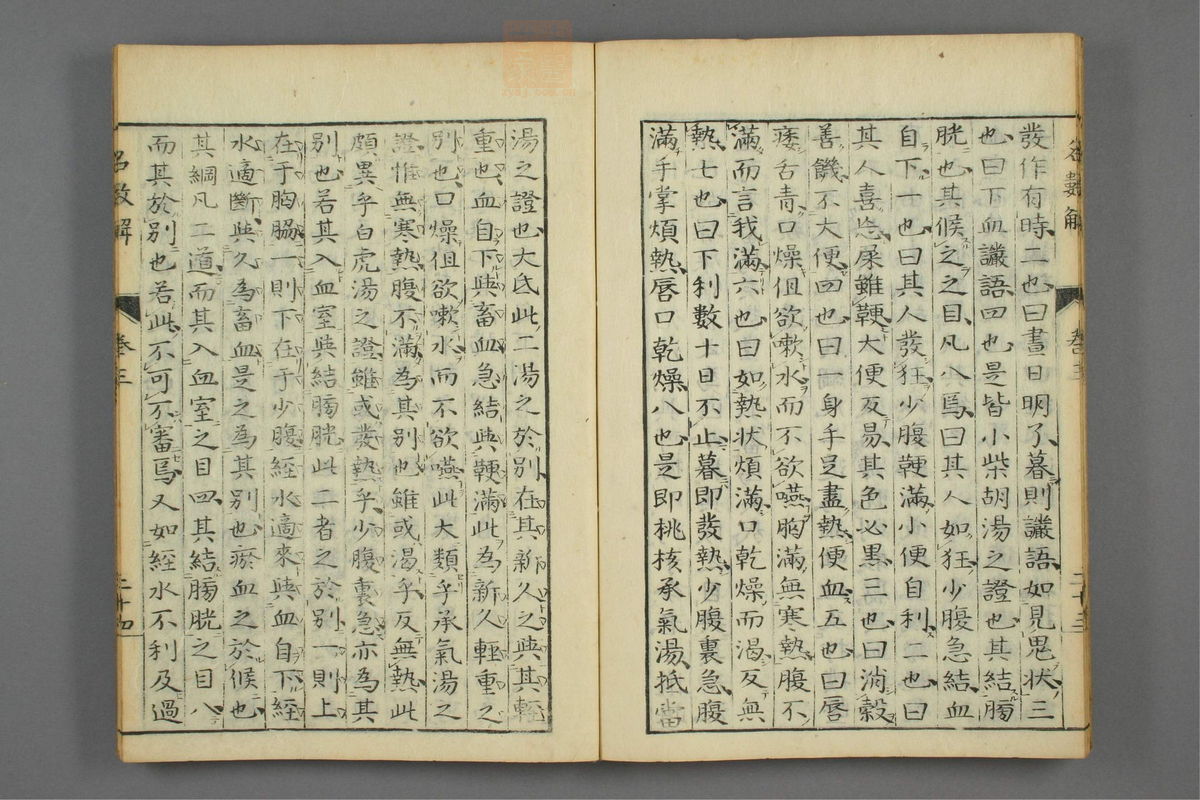 發作有時二也曰晝日明了暮則讝語如見鬼状三
也曰下血讝語四也是皆小柴胡湯之證也其結膓
胱也其候之之目凡八焉曰其人如狂少腹急結血
自下一也曰其人發狂少腹鞕滿小便自利二也曰
其人喜忘屎雖鞕大便反易其色必黒三也曰消穀
善饑不大便四也曰一身手足盡熱便血五也曰唇
痿舌青口燥但欲嗽水而不欲嚥胸滿無寒熱腹不
滿而言我滿六也曰如熱状煩滿口乾燥而渴反無
熱七也曰下利數十日不止暮即發熱少腹裏急腹
滿手掌煩熱唇口乾燥八也是即桃核承氣湯抵當
卷三
二十三
湯之證也大氐此二湯之於別在其新久之與其輕
重也血自下與畜血急結與鞕滿此為新久輕重之
別也口燥但欲嗽水而不欲嚥此大類乎承氣湯之
證惟無寒熱腹不滿為其別也雖或渴乎反無熱此
頗異乎白虎湯之證雖或發熱乎少腹裏急亦為其
別也若其入血室與結膓胱此二者之於別一則上
在于胸脇一則下在于少腹經水適來與血自下經
水適斷與久為畜血是之為其別也瘀血之於候也
其綱凡二道而其入血室之目四其結膓胱之目八
而其於別也若此不可不審焉又如經水不利及過
名數解
卷三
二十四